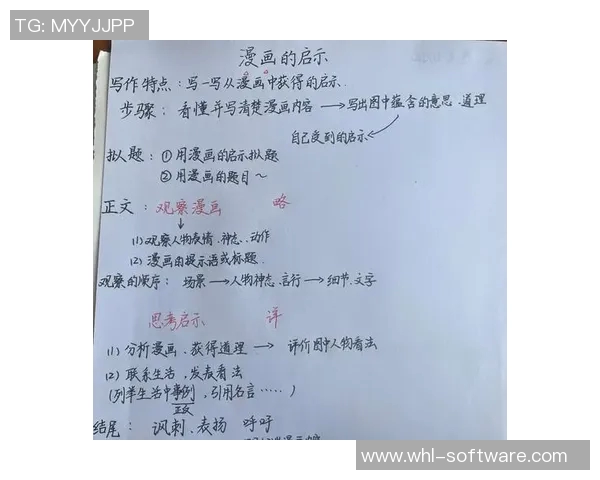 TG: MYYJJPP
漫画的启示
写作特点：写一写从漫画中获得的启示.
步骤： 看懂并写清楚漫画内容 → 写出图中蕴含的意思.道理
自己受到的启示
拟题：① 用漫画的启示拟题
② 用漫画的题目～
正文：观察漫画 略
(1) 观察人物表情.神态.动作
(2) 漫画的提示语或标题.
观察的顺序： 场景 → 人物神态.言行 → 细节.文字
思考启示 详
(1) 分析漫画.获得道理 → 评价图中人物看法
(2) 联系生活，发表看法
(列举生活中事例，引用名言……)
正反
结尾： 讽刺.表扬 呼吁
www.whl-software.com